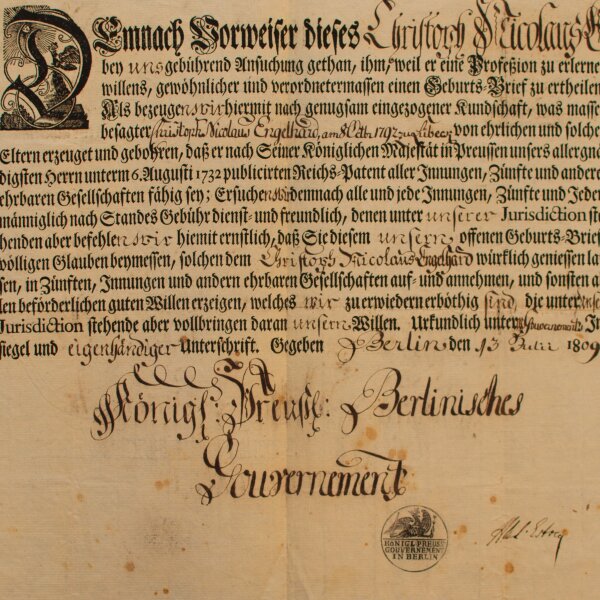 Demnach Vorweiser dieses Christoph Nicolaus
bey uns gebührend Ansuchung gethan, ihm, weil er eine Profeßion zu erlerne
willens, gewöhnlicher und verordnetermassen einen Geburts-Brief zu ertheile
Als bezeugen wir hiermit nach genugsam eingezogener Kundschaft, was masse
besagter Christoph Nicolaus Engelhard, am 8 Octb. 1792 zu Lübeck von ehrlichen und solche
Eltern erzeuget und gebohren, daß er nach Seiner Königlichen Majestät in Preussen unsers allergnä
digsten Herrn unterm 6. Augusti 1732 publicirten Reichs-Patent aller Innungen, Zünfte und andere
ehrbaren Gesellschaften fähig sey; Ersuchen wir demnach alle und jede Innungen, Zünfte und Jede
männiglich nach Standes Gebühr dienst- und freundlich, denen unter unserer Jurisdiction ste
henden aber befehlen wir hiemit ernstlich, daß Sie diesem unsern offenen Geburts-Brief
völligen Glauben beymessen, solchen dem Christoph Nicolaus Engelhard würklich geniessen la
sen, in Zünften, Innungen und andern ehrbaren Gesellschaften auf- und annehmen, und sonsten a
len beförderlichen guten Willen erzeigen, welches wir zu erwiedern erböthig sind, die unter unser
Jurisdiction stehende aber vollbringen daran unsern Willen. Urkundlich unter Gouvernements In
siegel und eigenhändiger Unterschrift. Gegeben Berlin den 13 1809
Königl: Preuß: Berlinisches
Gouvernement
KÖNIGL: PREUSS:
GOUVERNEMENT
IN BERLIN